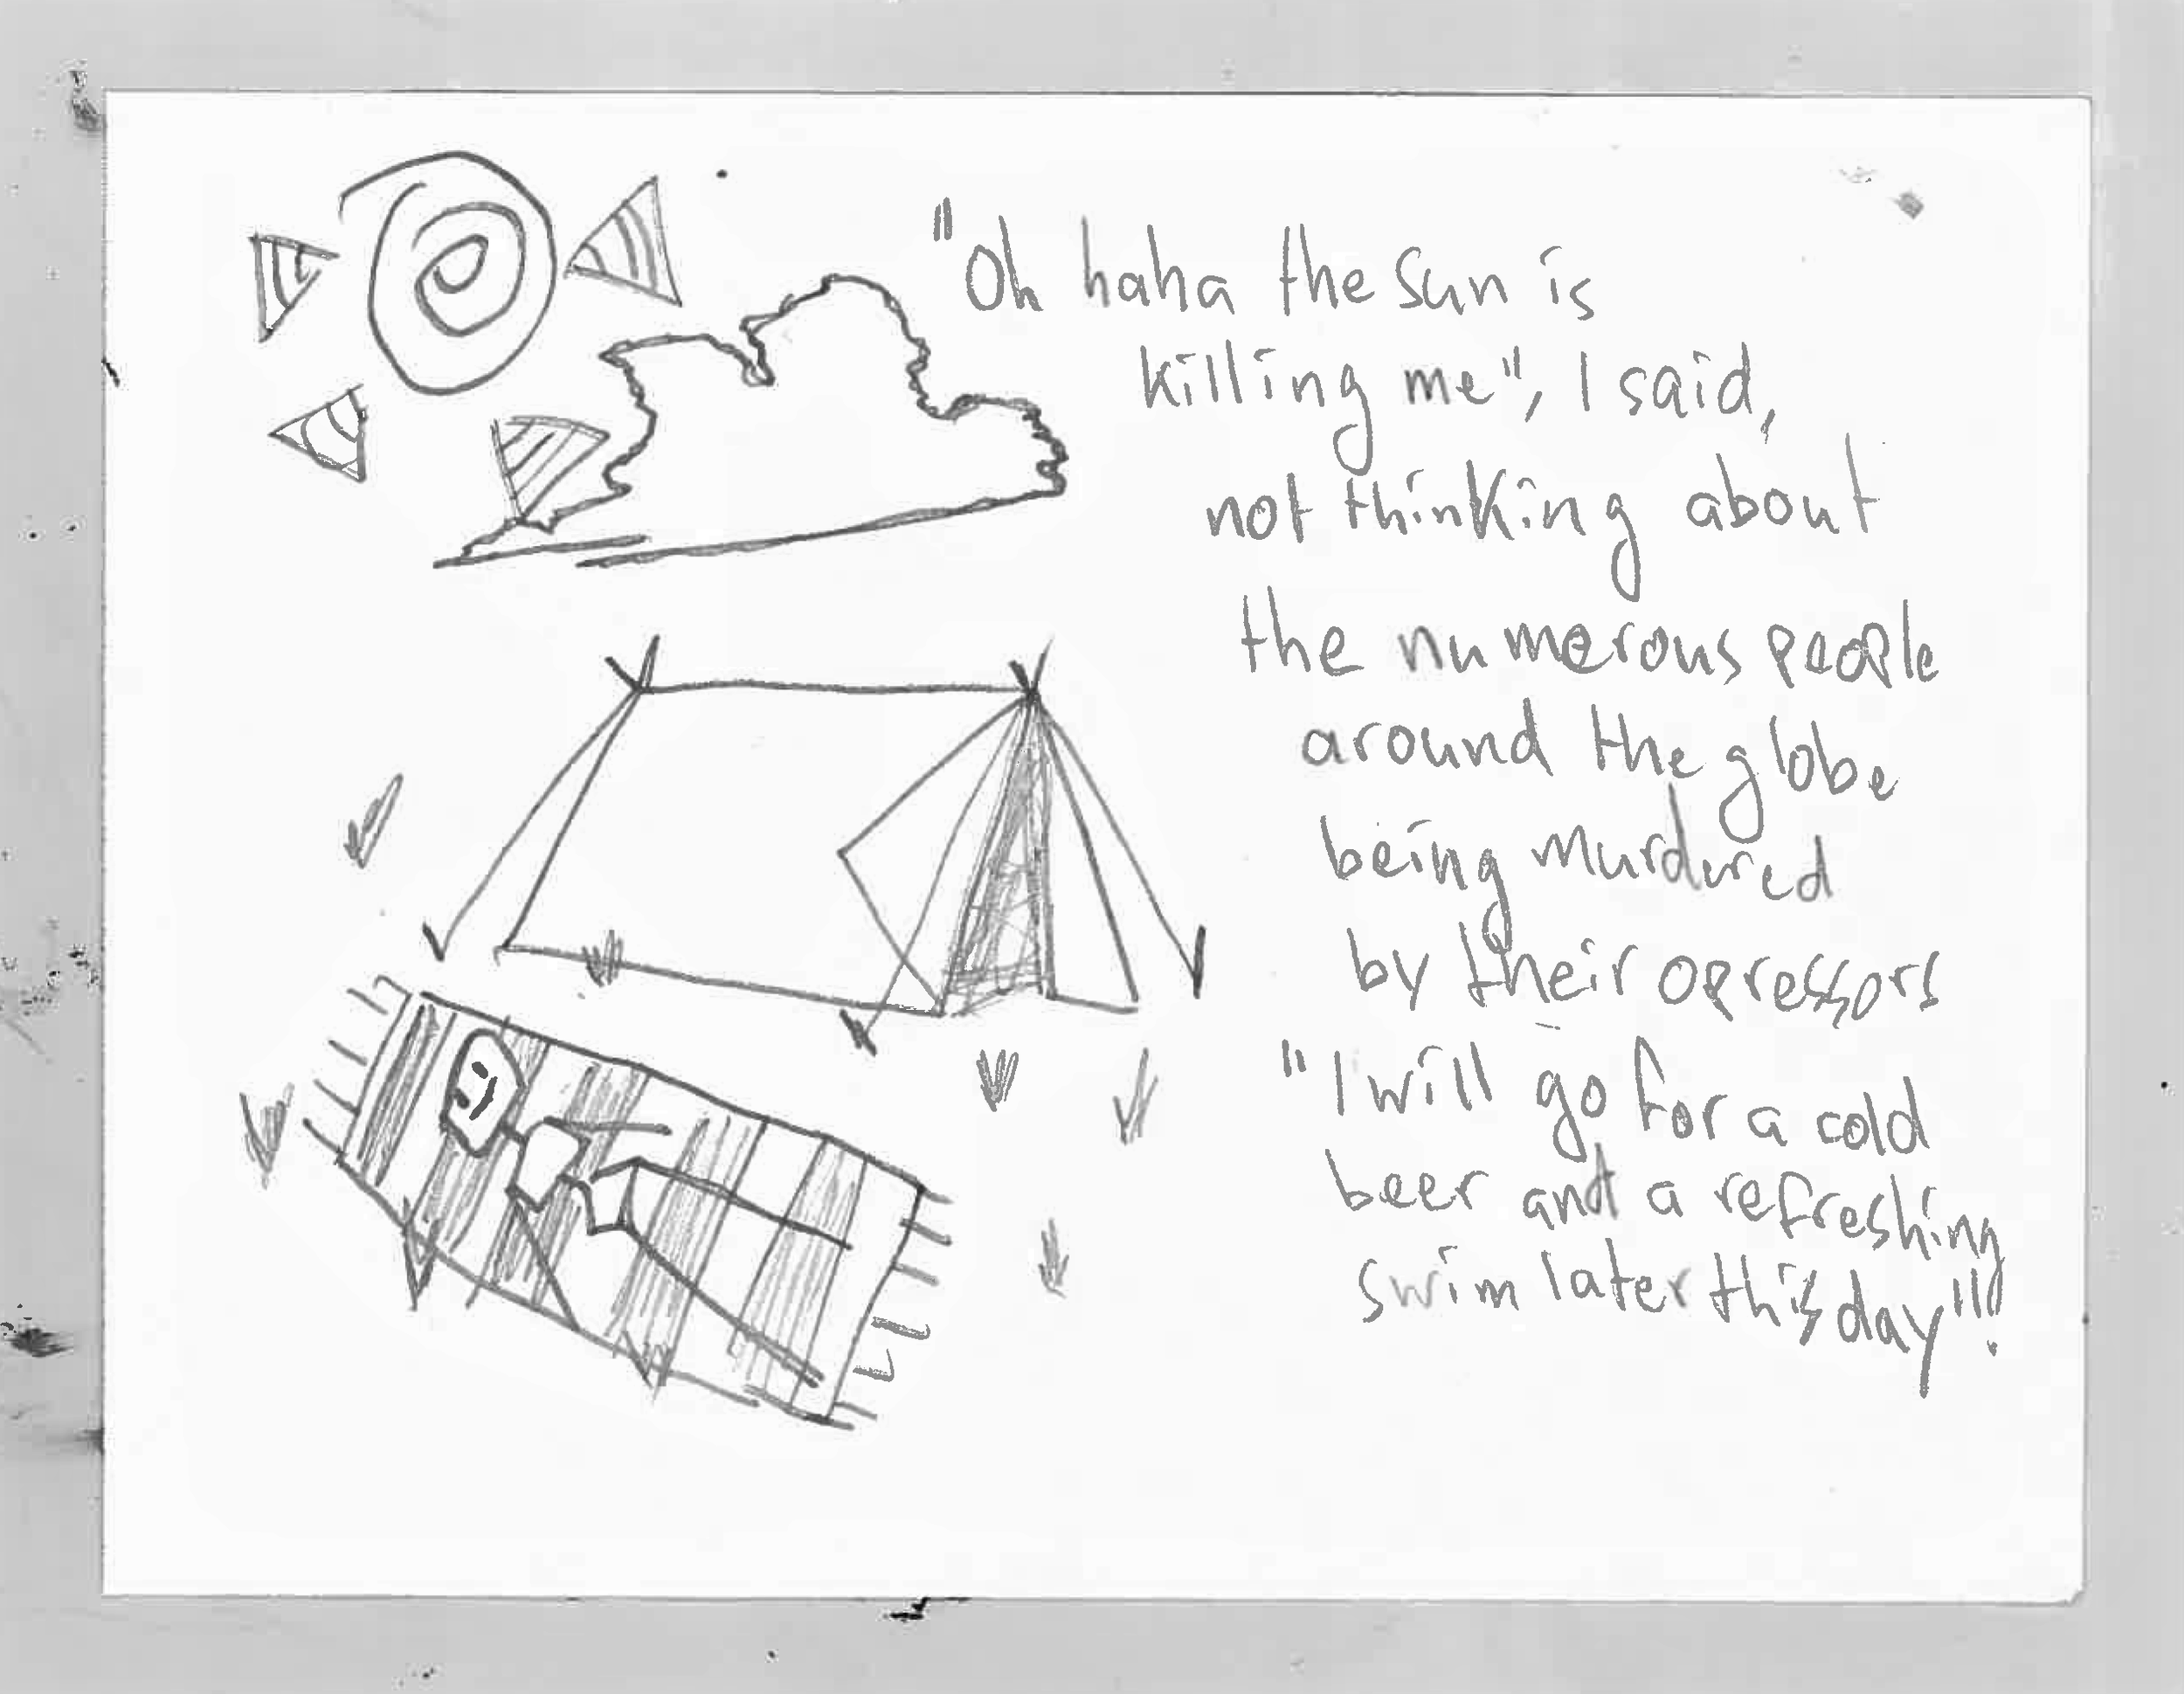 "Oh haha the sun is
killing me", I said,
not thinking about
the numerous people
around the globe
being murdured
by their opressors
"I will go for a cold
beer and a refreshing
swim later this day"!!